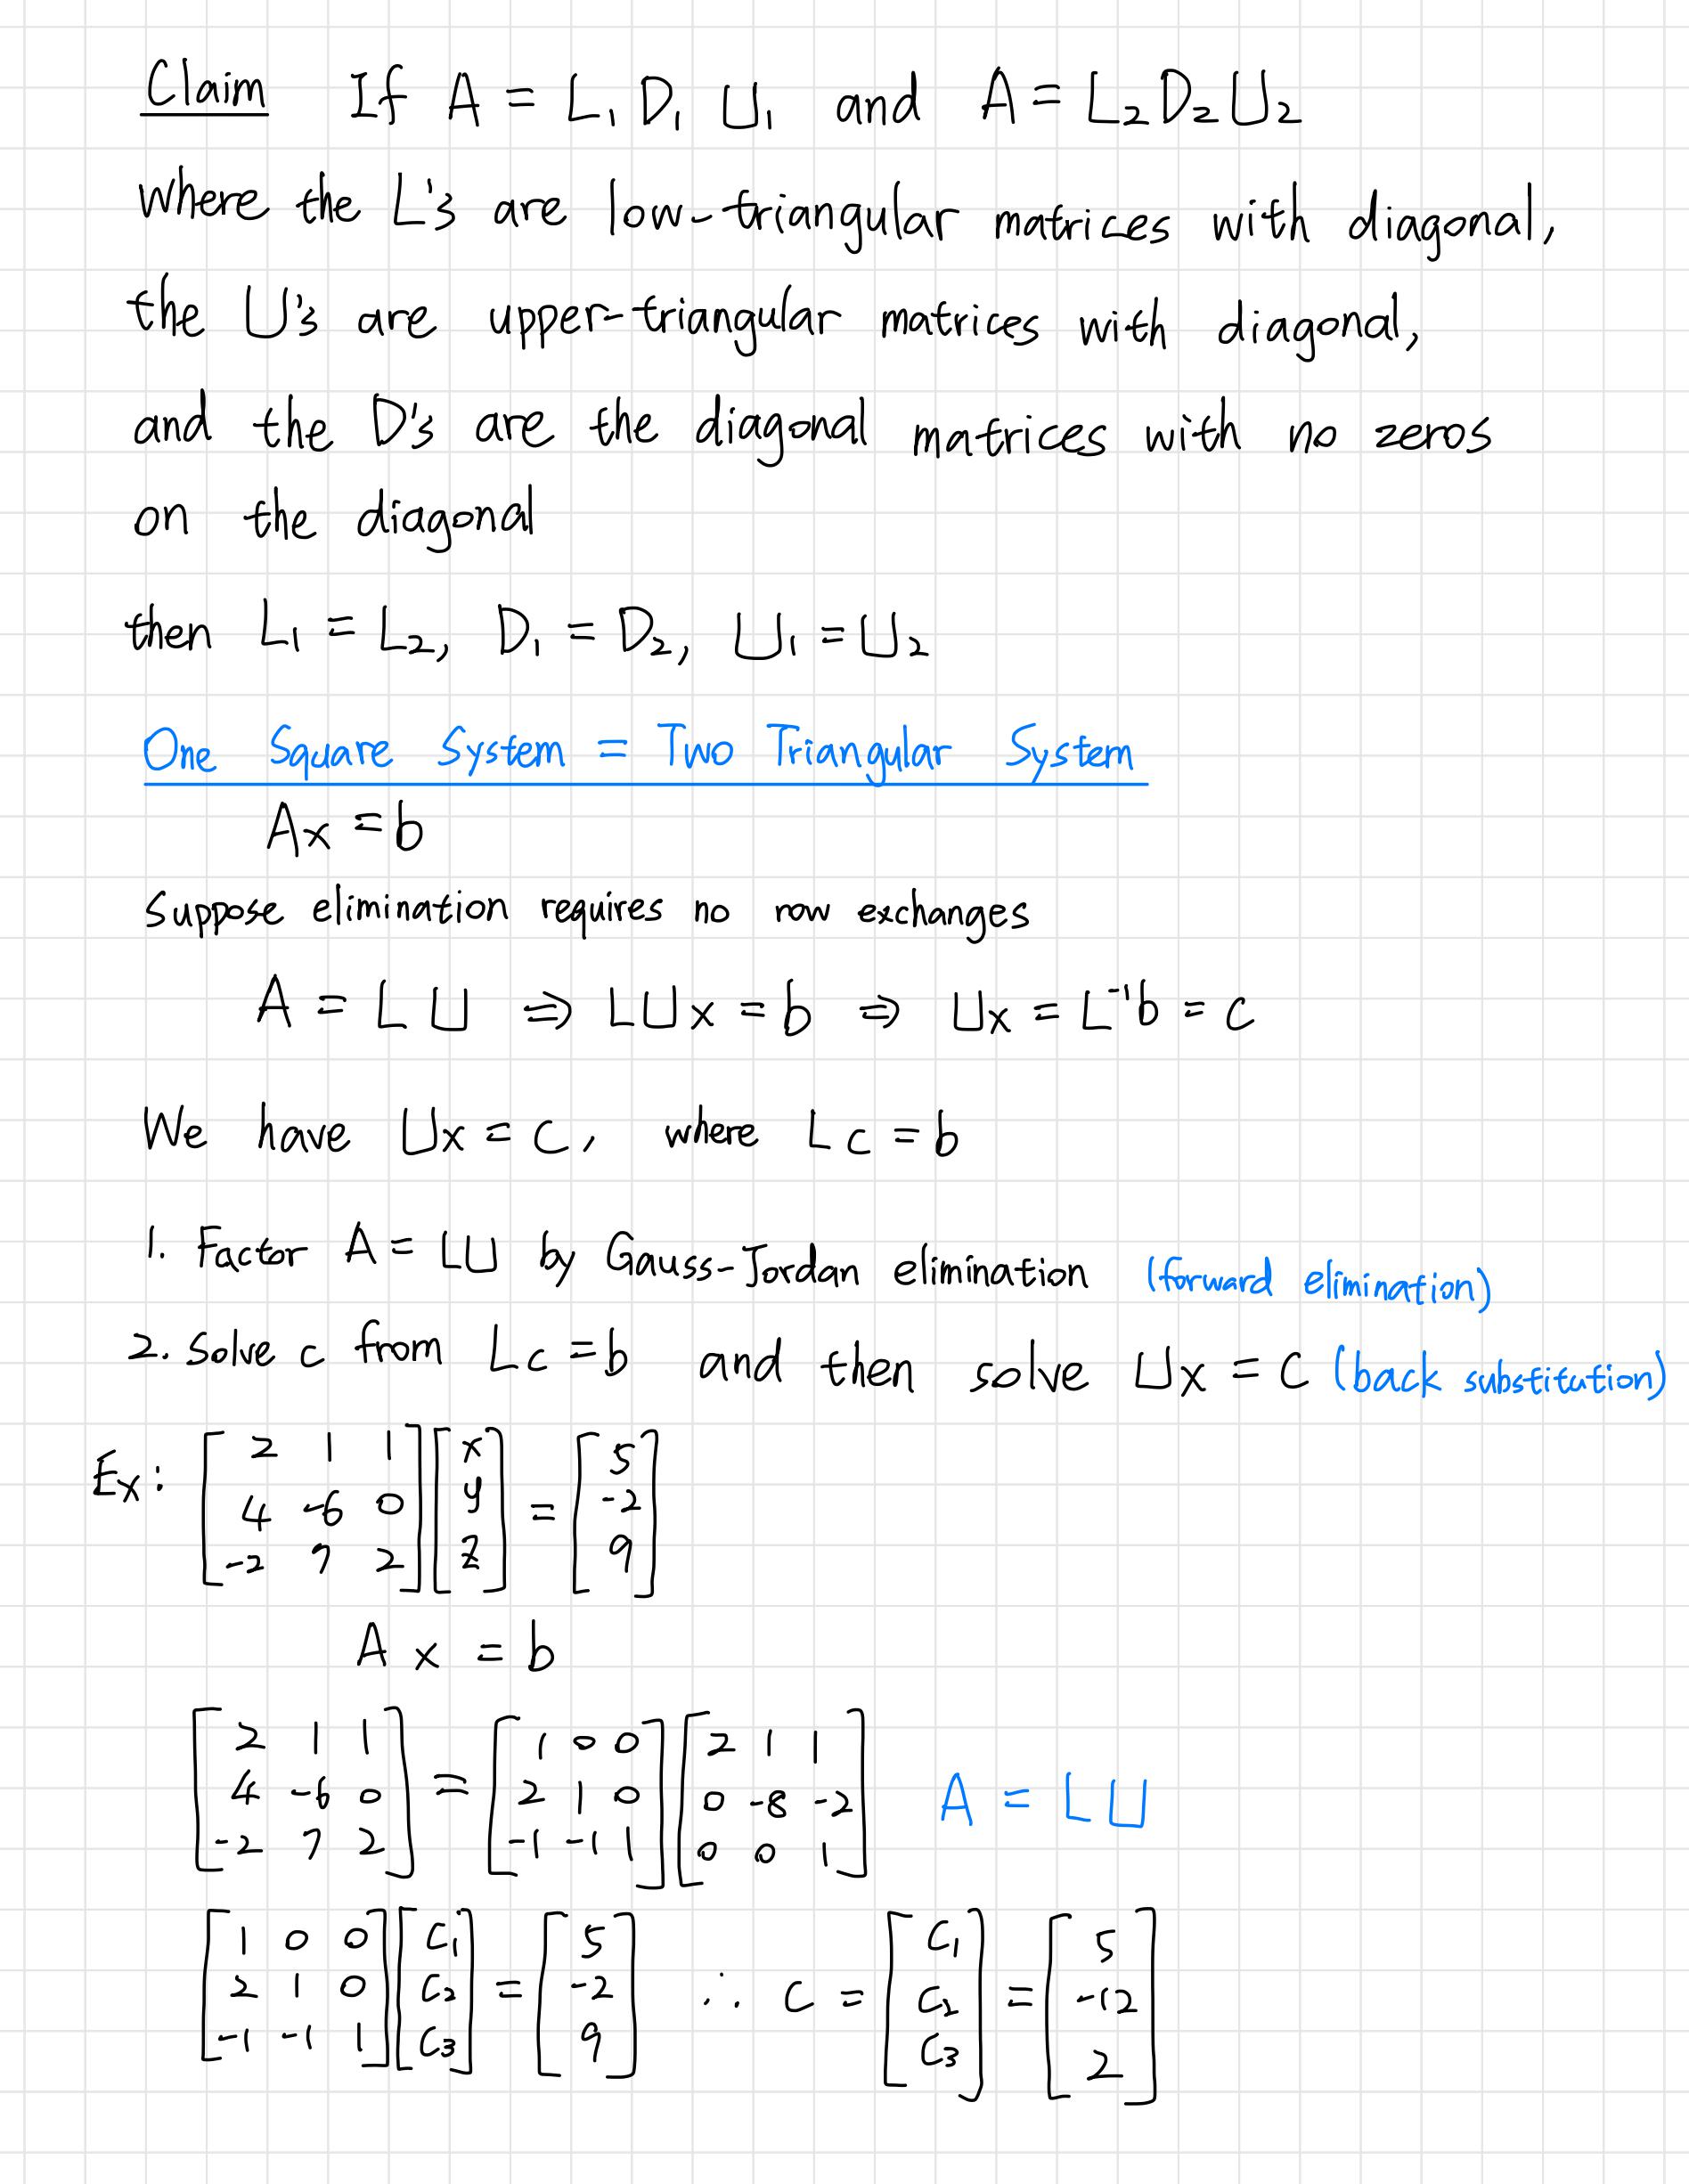 Claim If A = L₁ D₁ U₁ and A = L₂ D₂ U₂
where the L's are low-triangular matrices with diagonal,
the U's are upper-triangular matrices with diagonal,
and the D's are the diagonal matrices with no zeros
on the diagonal
then L₁ = L₂, D₁ = D₂, U₁ = U₂
One Square System = Two Triangular System
Ax = b
Suppose elimination requires no row exchanges
A = LU ⇒ LUx = b ⇒ Ux = L⁻¹b = c
We have Ux = c, where Lc = b
1. Factor A = LU by Gauss-Jordan elimination (forward elimination)
2. Solve c from Lc = b and then solve Ux = c (back substitution)
Ex: [2 1 1; 4 -6 0; -2 7 2] [x; y; z] = [5; -2; 9]
A x = b
[2 1 1; 4 -6 0; -2 7 2] = [1 0 0; 2 1 0; -1 -1 1] [2 1 1; 0 -8 -2; 0 0 1] A = LU
[1 0 0; 2 1 0; -1 -1 1] [C₁; C₂; C₃] = [5; -2; 9] ∴ c = [C₁; C₂; C₃] = [5; -12; 2]